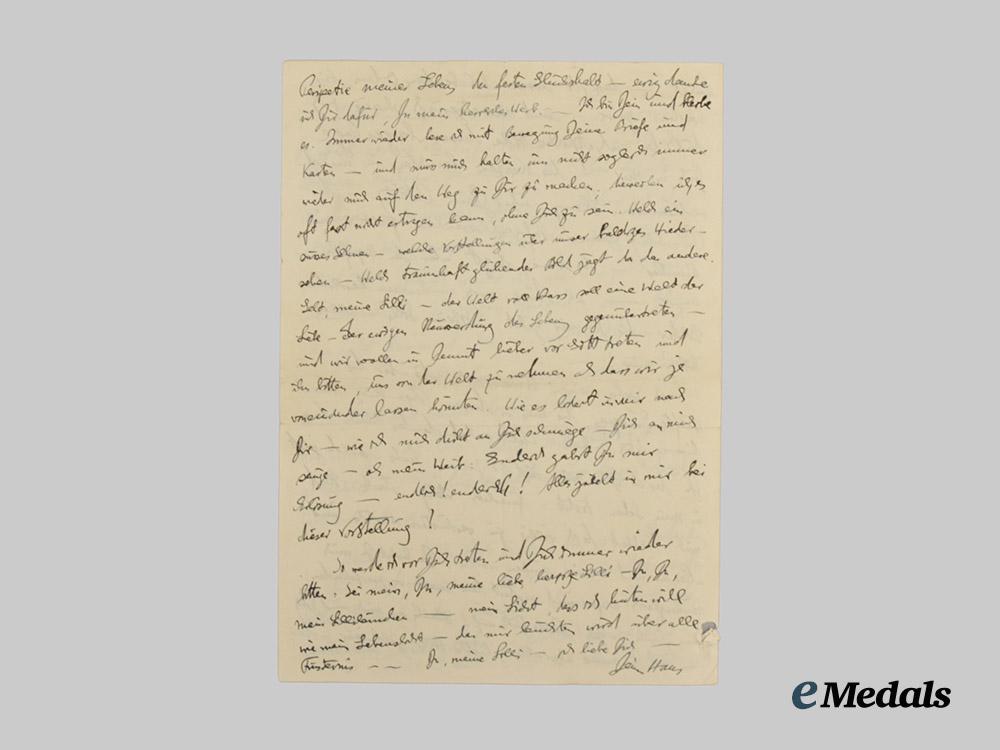 meiner Lebens den festen — ewig danke
ich Dir dafür, Du mein herrliches Weib. — Ich bin Dein und bleibe
es. Immer wieder lese ich mit Bewegung Deine Briefe und
Karten — und muss mich halten, um nicht sogleich immer
wieder mich auf den Weg zu Dir zu machen, ich es
oft fast nicht ertragen kann, ohne Dich zu sein. Welch ein
süsses Sehnen — welche Vorstellungen über unser baldiges Wieder-
sehen — Welch traumhaft glühender Bild jagt da das andere.
meine Lilli — der Welt voll Hass soll eine Welt der
Liebe — der ewigen Neuwerdung des Lebens gegenübertreten —
und wir wollen in Demut lieber vor Gott treten und
ihn bitten, uns von der Welt zu nehmen als dass wir je
voneinander lassen könnten. Wie es lodert in mir nach
Dir — wie ich mich dicht an Dich schmiege — Dich an mich
— als mein Weib. Endlich gabst Du mir
Erlösung — endlich! endlich! Alles in mir bei
dieser Vorstellung!
So werde ich vor Dich treten und Dich immer wieder
bitten. Sei mein, Du, meine liebe Lilli — Du, Du,
mein — mein Licht, das ich hüten will
wie mein Lebenslicht — das mir leuchten wird über alle
Finsternis — — Du, meine Lilli — ich liebe Dich —
Dein Hans
eMedals